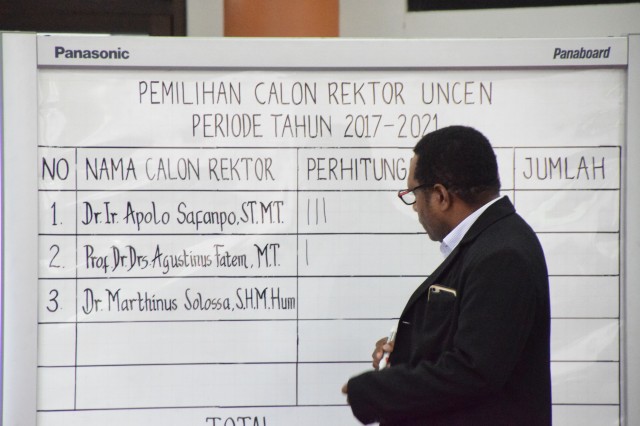 Panasonic Panaboard
PEMILIHAN CALON REKTOR UNCEN
PERIODE TAHUN 2017-2021
NO NAMA CALON REKTOR PERHITUNG JUMLAH
1. Dr. Ir. Apolo Safanpo, ST. M.T. |||
2. Prof. Dr. Drs. Agustinus Fatem, M.T. |
3. Dr. Marthinus Solossa, S.H. M. Hum
TOTAL